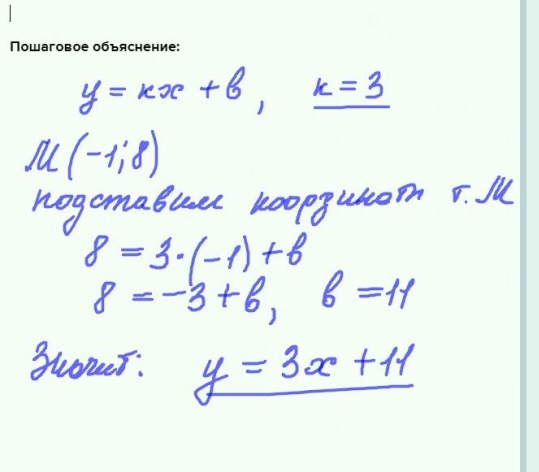 Пошаговое объяснение:
y = kx + b, k = 3
М (-1; 8)
подставим координаты т. М
8 = 3·(-1) + b
8 = -3 + b, b = 11
Значит: y = 3x + 11